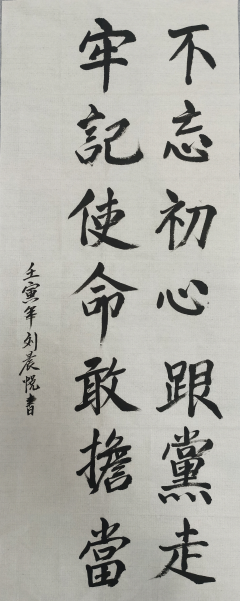 不忘初心跟黨走
牢記使命敢擔當
壬寅年刘晨悦書